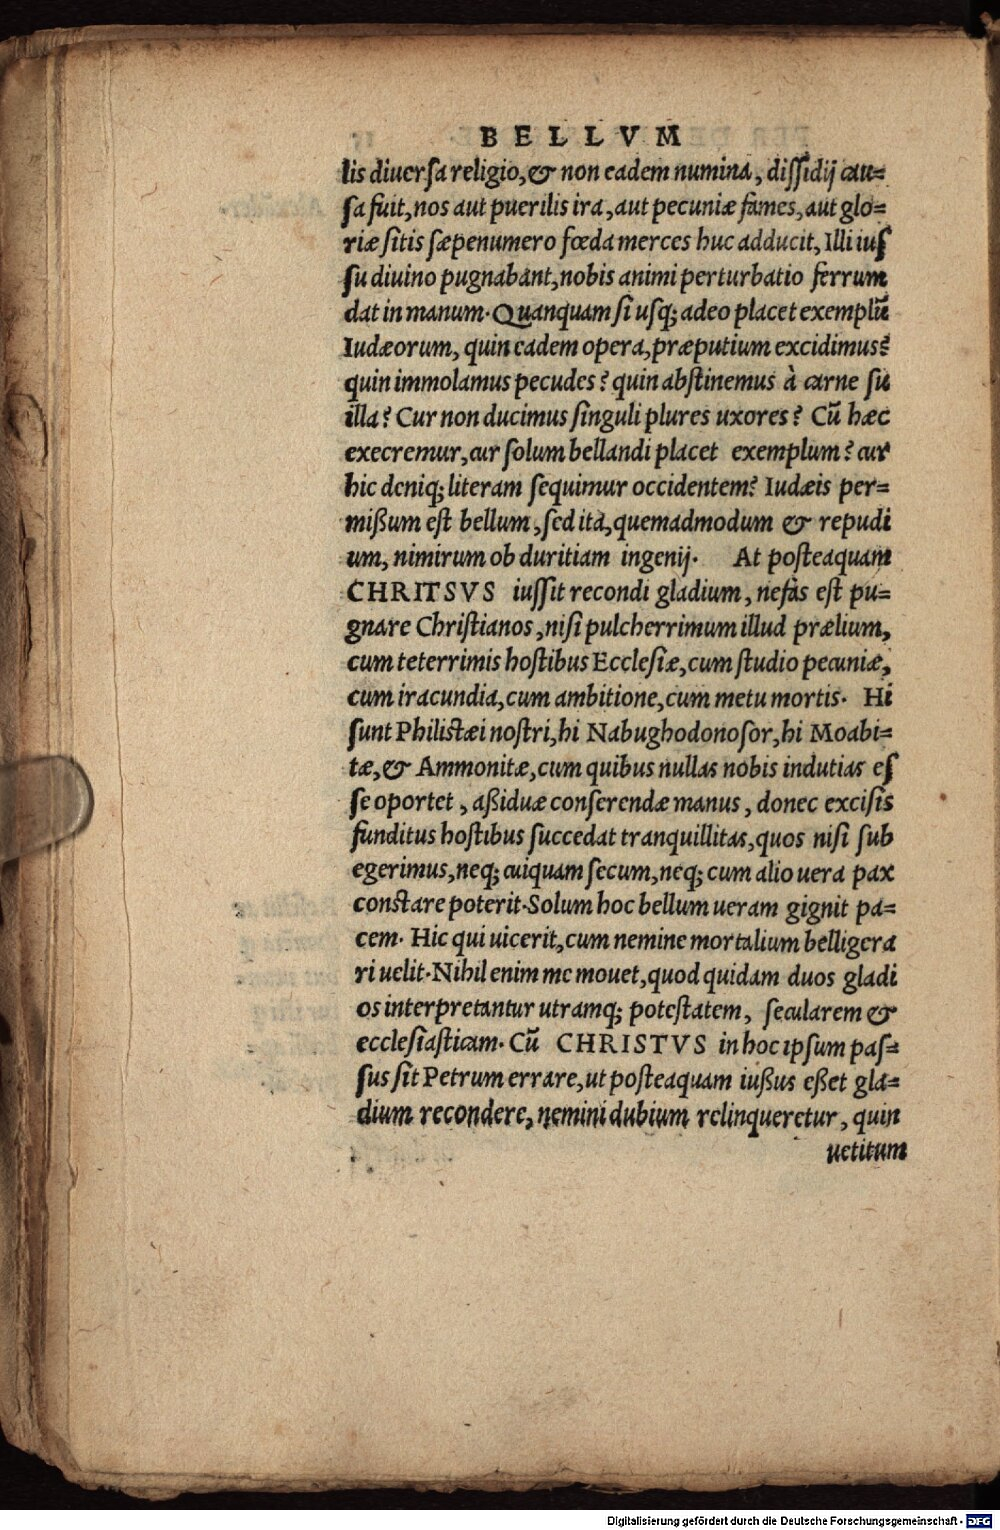 BELLVM
lis diuersa religio, & non eadem numina, dissidij cau=
sa fuit, nos aut puerilis ira, aut pecuniæ fames, aut glo=
riæ sitis sæpenumero fœda merces huc adducit, Illi ius
su diuino pugnabant, nobis animi perturbatio ferrum
dat in manum. Quanquam si usq; adeo placet exemplū
Iudæorum, quin eadem opera, præputium excidimus?
quin immolamus pecudes? quin abstinemus à carne su
illa? Cur non ducimus singuli plures uxores? Cū hæc
execremur, cur solum bellandi placet exemplum? cur
hic deniq; literam sequimur occidentem? Iudæis per=
mißum est bellum, sed ita, quemadmodum & repudi
um, nimirum ob duritiam ingenij. At posteaquam
CHRITSVS iussit recondi gladium, nefas est pu=
gnare Christianos, nisi pulcherrimum illud prælium,
cum teterrimis hostibus Ecclesiæ, cum studio pecuniæ,
cum iracundia, cum ambitione, cum metu mortis. Hi
sunt Philistæi nostri, hi Nabughodonosor, hi Moabi=
tæ, & Ammonitæ, cum quibus nullas nobis indutias es
se oportet, aßiduæ conserendæ manus, donec excisis
funditus hostibus succedat tranquillitas, quos nisi sub
egerimus, neq; cuiquam secum, neq; cum alio uera pax
constare poterit. Solum hoc bellum ueram gignit pa=
cem. Hic qui uicerit, cum nemine mortalium belligera
ri uelit. Nihil enim me mouet, quod quidam duos gladi
os interpretantur utramq; potestatem, secularem &
ecclesiasticam. Cū CHRISTVS in hoc ipsum pas=
sus sit Petrum errare, ut posteaquam iußus eßet gla=
dium recondere, nemini dubium relinqueretur, quin
uetitum
Digitalisierung gefördert durch die Deutsche Forschungsgemeinschaft - DFG